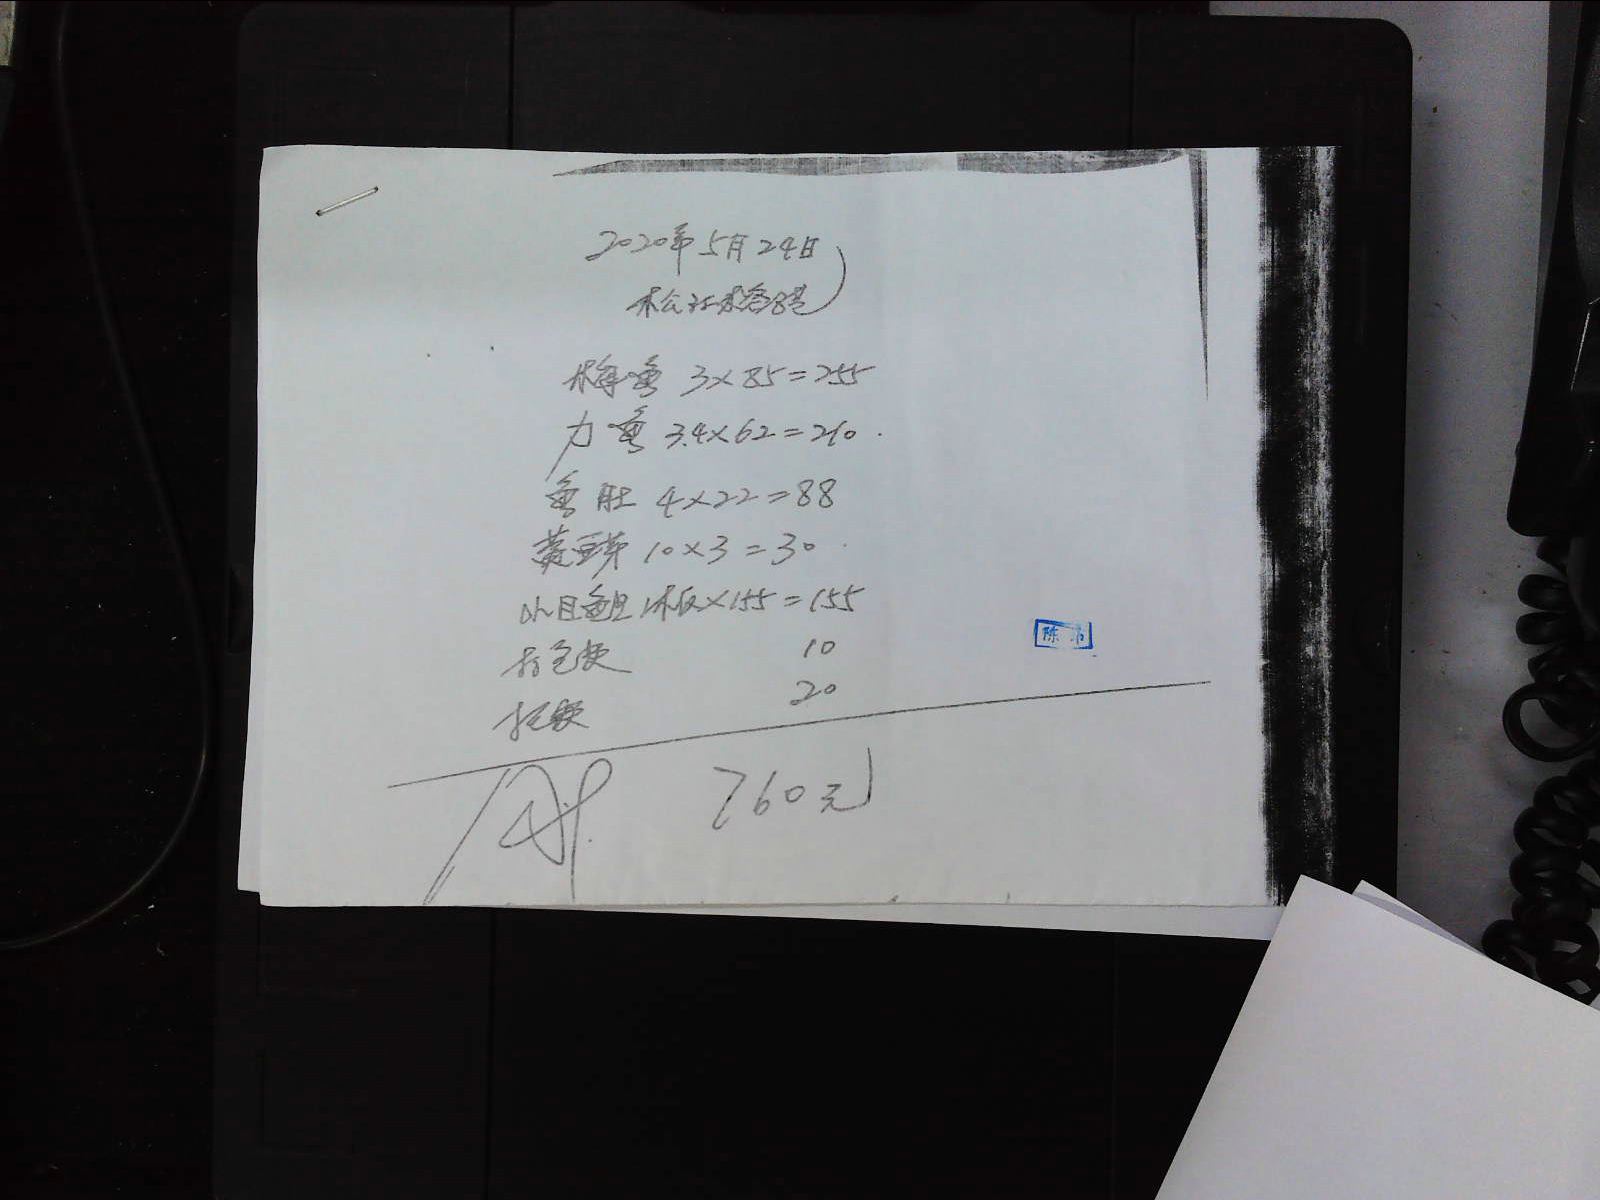 2020年5月24日
梅鱼 3×85=255
力鱼 3.4×62=210.
鱼肚 4×22=88
黄豆芽 10×3=30.
小目鱼旦 1板×155=155
打包费 10
托费 20
760元
陈